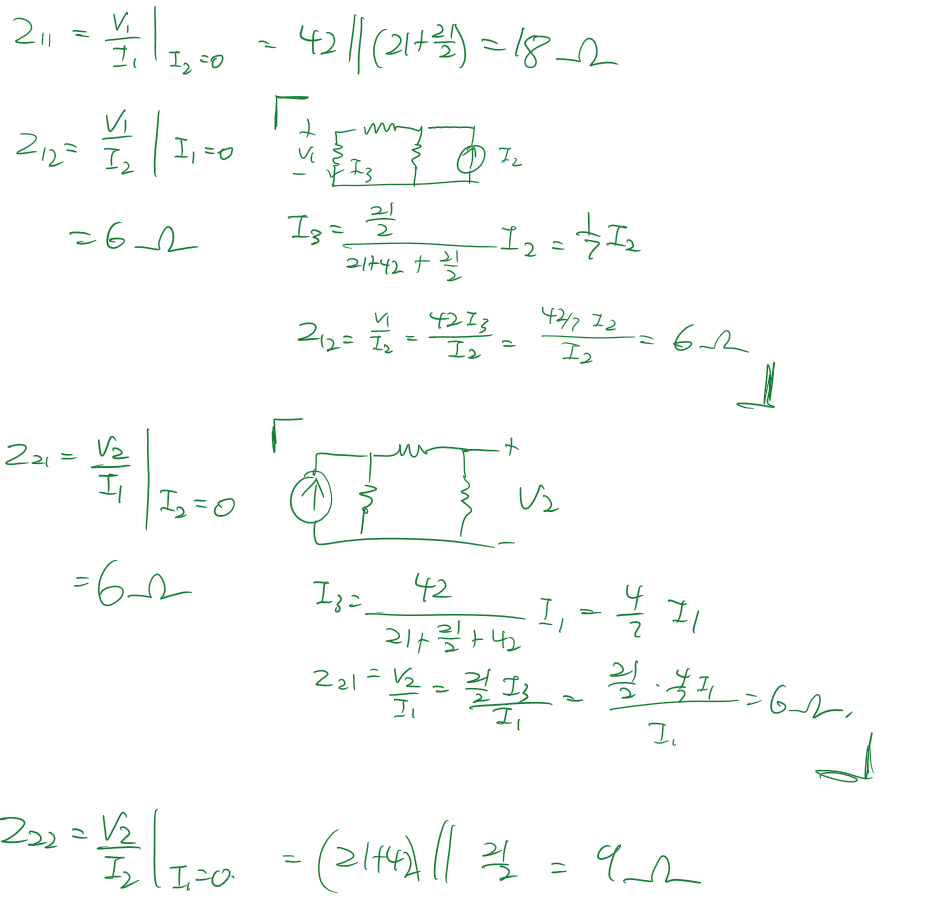 Z11 = V1/I1 | I2=0 = 42 || (21+21/2) = 18 Ω
Z12 = V1/I2 | I1=0
+ V1 - I3 I2
= 6 Ω
I3 = (21/2)/(21+42+21/2) I2 = 1/7 I2
Z12 = V1/I2 = 42I3/I2 = (42/7 I2)/I2 = 6 Ω
Z21 = V2/I1 | I2=0
+ V2 -
= 6 Ω
I3 = 42/(21+21/2+42) I1 = 4/7 I1
Z21 = V2/I1 = (21/2 I3)/I1 = (21/2 · 4/7 I1)/I1 = 6 Ω.
Z22 = V2/I2 | I1=0. = (21+42) || 21/2 = 9 Ω